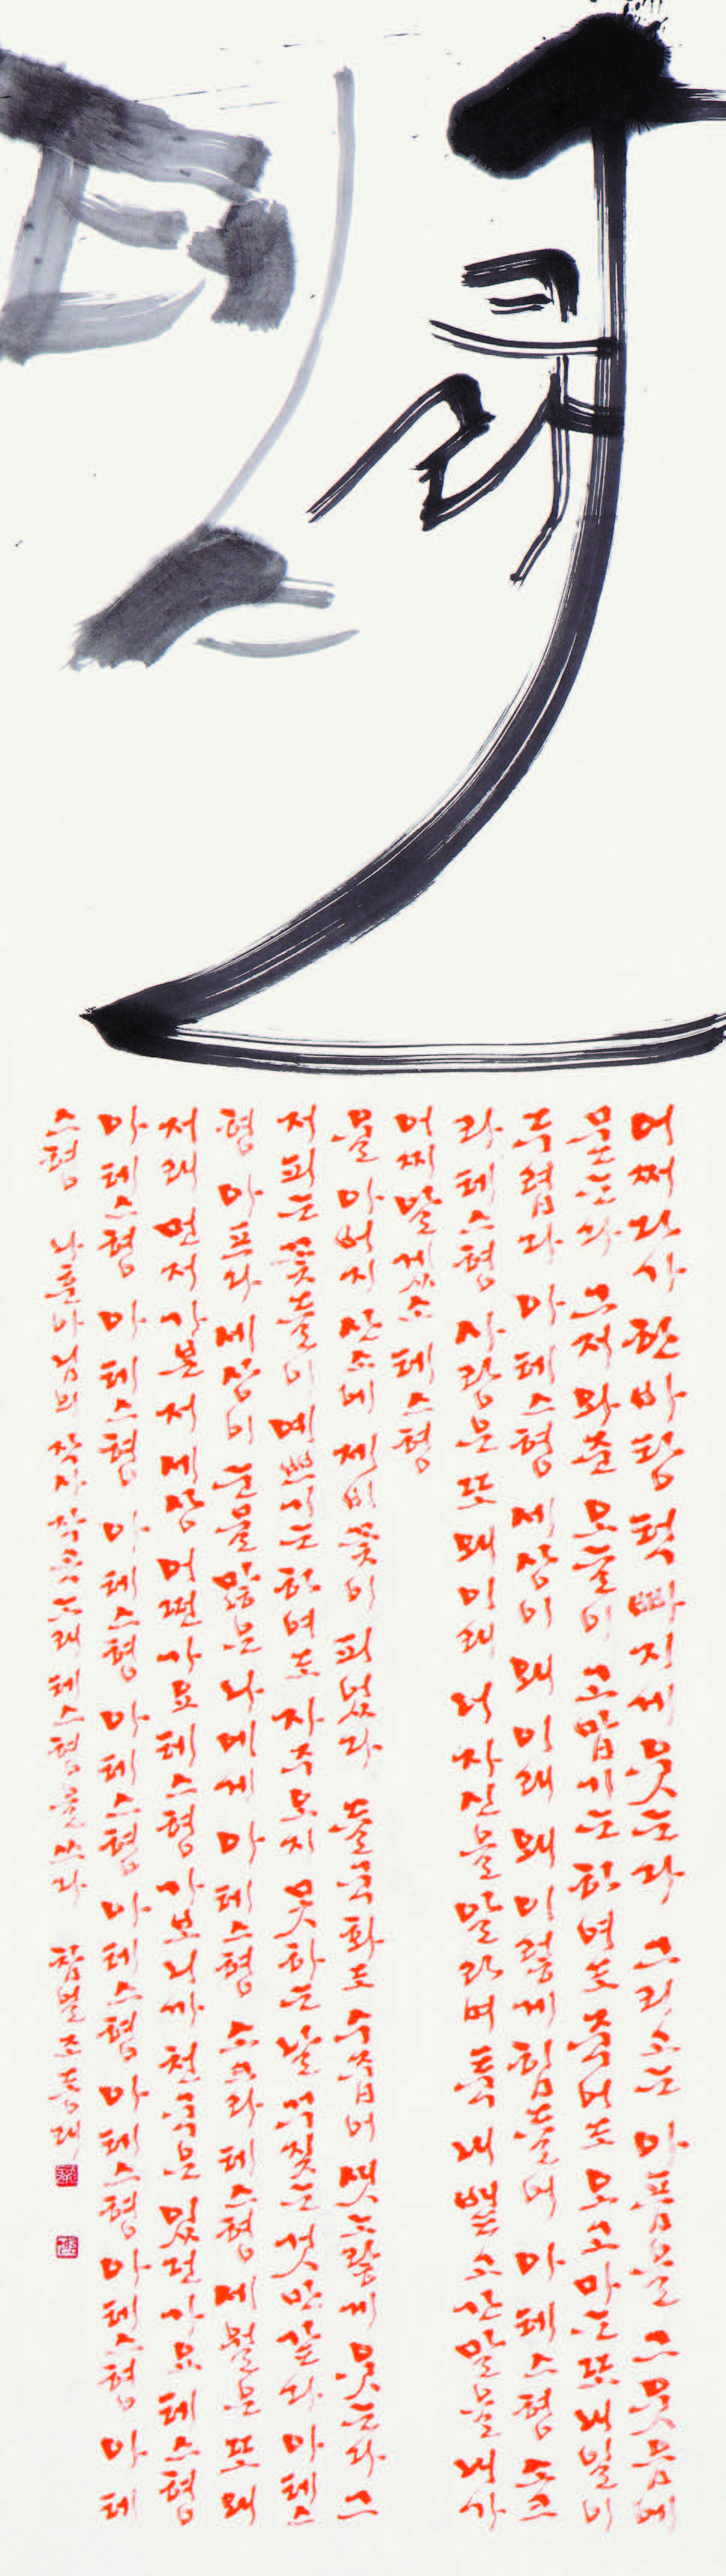 어쩌다가 한바탕 턱 빠지게 웃는다 그리고는 아픔을 그 웃음에
묻는다 그저 와준 오늘이 고맙기는 하여도 죽어도 오고 마는 또 내일이
두렵다 아 테스형 세상이 왜 이래 왜 이렇게 힘들어 아 테스형 소크
라테스형 사랑은 또 왜 이래 너 자신을 알라며 툭 내뱉고 간 말을 내가
어찌 알겠소 테스형
울 아버지 산소에 제비꽃이 피었다 들국화도 수줍어 샛노랗게 웃는다 그
저 피는 꽃들이 예쁘기는 하여도 자주 오지 못하는 날 꾸짖는 것만 같다 아 테스
형 아프다 세상이 눈물 많은 나에게 아 테스형 소크라테스형 세월은 또 왜
저래 먼저 가본 저세상 어떤가요 테스형 가보니까 천국은 있던가요 테스형
아 테스형 아 테스형 아 테스형 아 테스형 아 테스형 아 테스형 아 테스형 아 테
스형 나훈아님의 작사 작곡 노래 테스형을 쓰다